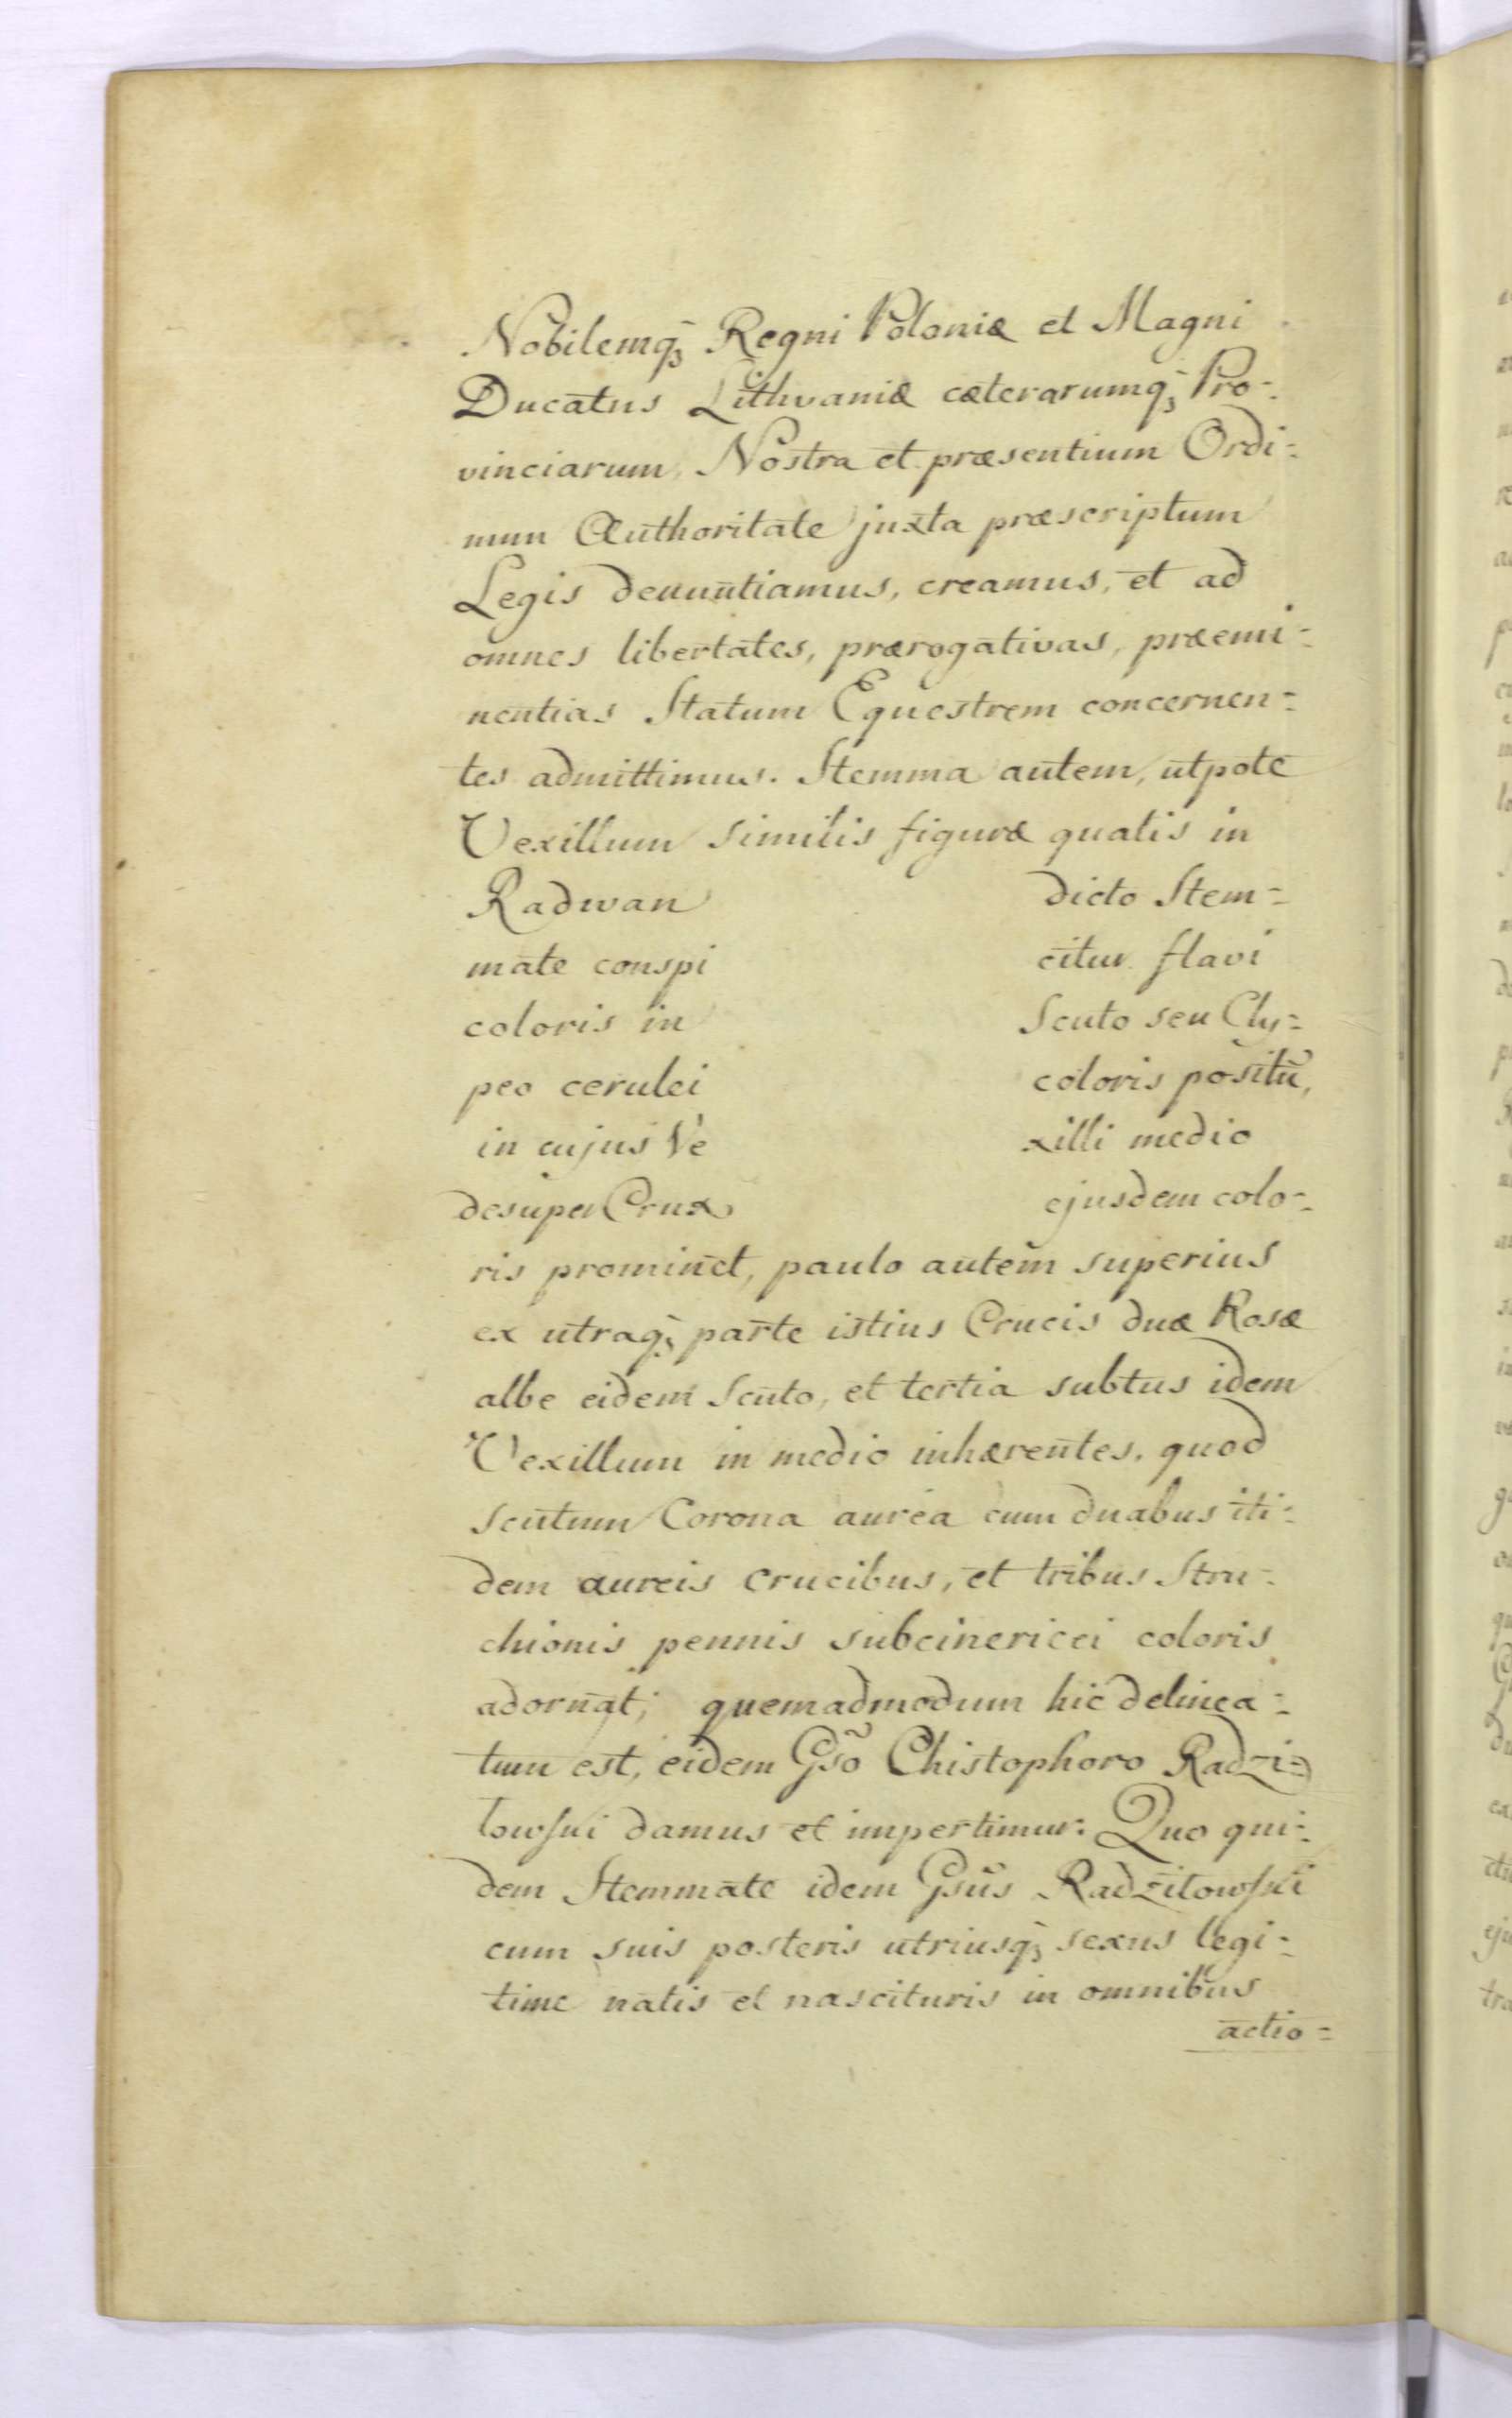 Nobilemq́; Regni Poloniæ et Magni
Ducatus Lithvaniæ cæterarumq́; Pro=
vinciarum, Nostra et præsentium Ordi=
num Authoritate juxta præscriptum
Legis denuntiamus, creamus, et ad
omnes libertates, prærogativas, præemi=
nentias Statum Equestrem concernen=
tes admittimus. Stemma autem, utpote
Vexillum similis figuræ qualis in
Radwan dicto Stem=
mate conspi citur flavi
coloris in Scuto seu Cly=
peo cerulei coloris positū,
in cujus Ve xilli medio
desuper Crux ejusdem colo=
ris prominet, paulo autem superius
ex utraq́; parte istius Crucis duæ Rosæ
albe eidem Scuto, et tertia subtus idem
Vexillum in medio inhærentes, quod
scutum Corona aurea cum duabus iti=
dem aureis crucibus, et tribus Stru=
chionis pennis subcinericei coloris
adornat; quemadmodum hic delinea=
tum est, eidem Gsõ Chistophoro Radzi=
łowski damus et impertimur. Quo qui=
dem Stemmate idem Gsũs Radziłowski
cum suis posteris utriusq́; sexus legi=
time natis et nascituris in omnibus
actio=